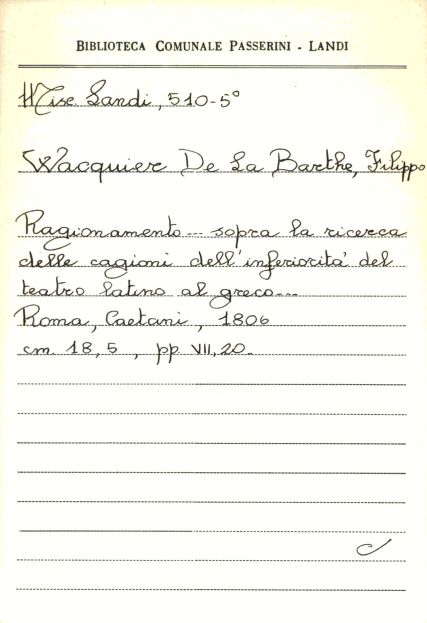 BIBLIOTECA COMUNALE PASSERINI - LANDI
Misc. Landi, 510-5°
Wacquier De La Barthe, Filippo
Ragionamento... sopra la ricerca
delle cagioni dell'inferiorità del
teatro latino al greco...
Roma, Caetani, 1806
cm. 18,5, pp. VII, 20.